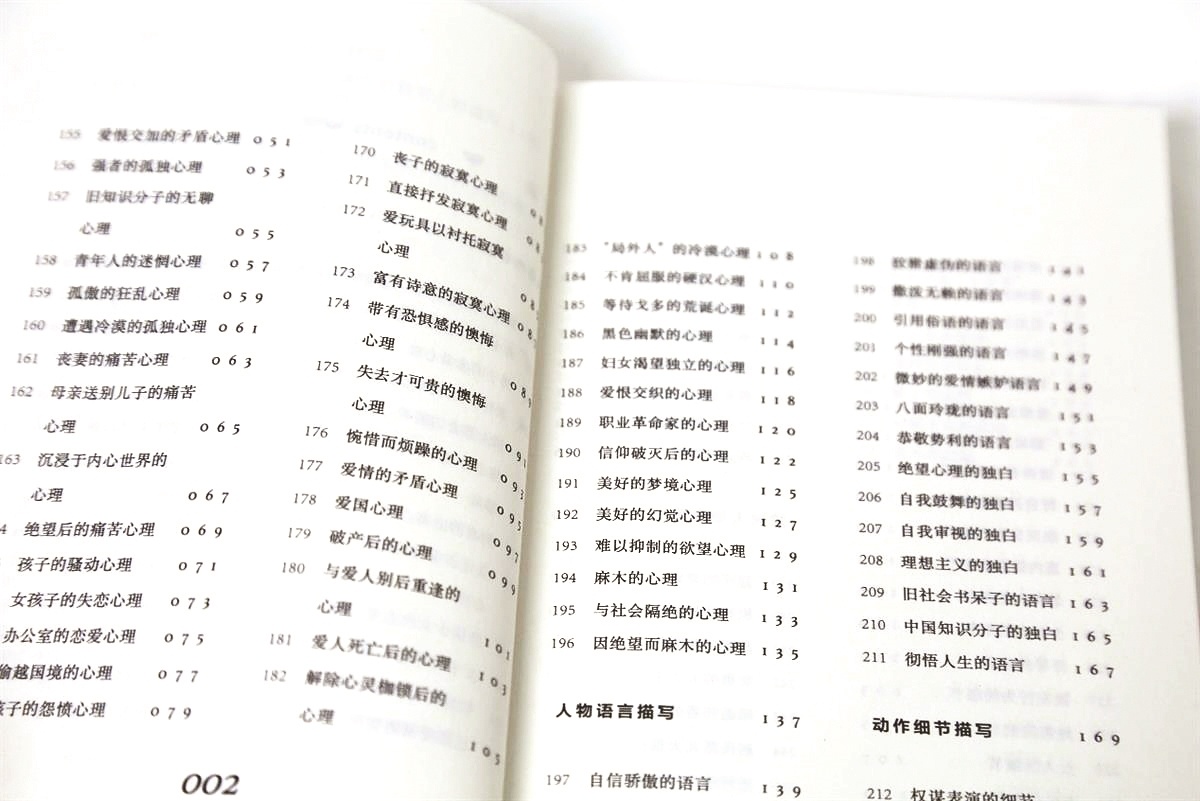 155 爱恨交加的矛盾心理 051
156 强者的孤独心理 053
157 旧知识分子的无聊
心理 055
158 青年人的迷惘心理 057
159 孤傲的狂乱心理 059
160 遭遇冷漠的孤独心理 061
161 丧妻的痛苦心理 063
162 母亲送别儿子的痛苦
心理 065
163 沉浸于内心世界的
心理 067
4 绝望后的痛苦心理 069
孩子的骚动心理 071
女孩子的失恋心理 073
办公室的恋爱心理 075
偷越国境的心理 077
孩子的怨愤心理 079
002
170 丧子的寂寞心理
171 直接抒发寂寞心理
172 爱玩具以衬托寂寞
心理
173 富有诗意的寂寞心理
174 带有恐惧感的懊悔
心理
175 失去才可贵的懊悔
心理
176 惋惜而烦躁的心理 091
177 爱情的矛盾心理 093
178 爱国心理 095
179 破产后的心理 097
180 与爱人别后重逢的 099
心理
181 爱人死亡后的心理 101
182 解除心灵枷锁后的 103
心理
105
183 “局外人”的冷漠心理 108
184 不肯屈服的硬汉心理 110
185 等待戈多的荒诞心理 112
186 黑色幽默的心理 114
187 妇女渴望独立的心理 116
188 爱恨交织的心理 118
189 职业革命家的心理 120
190 信仰破灭后的心理 122
191 美好的梦境心理 125
192 美好的幻觉心理 127
193 难以抑制的欲望心理 129
194 麻木的心理 131
195 与社会隔绝的心理 133
196 因绝望而麻木的心理 135
人物语言描写 137
197 自信骄傲的语言 139
198 狡猾虚伪的语言
199 撒泼无赖的语言 143
200 引用俗语的语言 145
201 个性刚强的语言 147
202 微妙的爱情嫉妒语言 149
203 八面玲珑的语言 151
204 恭敬势利的语言 153
205 绝望心理的独白 155
206 自我鼓舞的独白 157
207 自我审视的独白 159
208 理想主义的独白 161
209 旧社会书呆子的语言 163
210 中国知识分子的独白 165
211 彻悟人生的语言 167
动作细节描写 169
212 权谋表演的细节